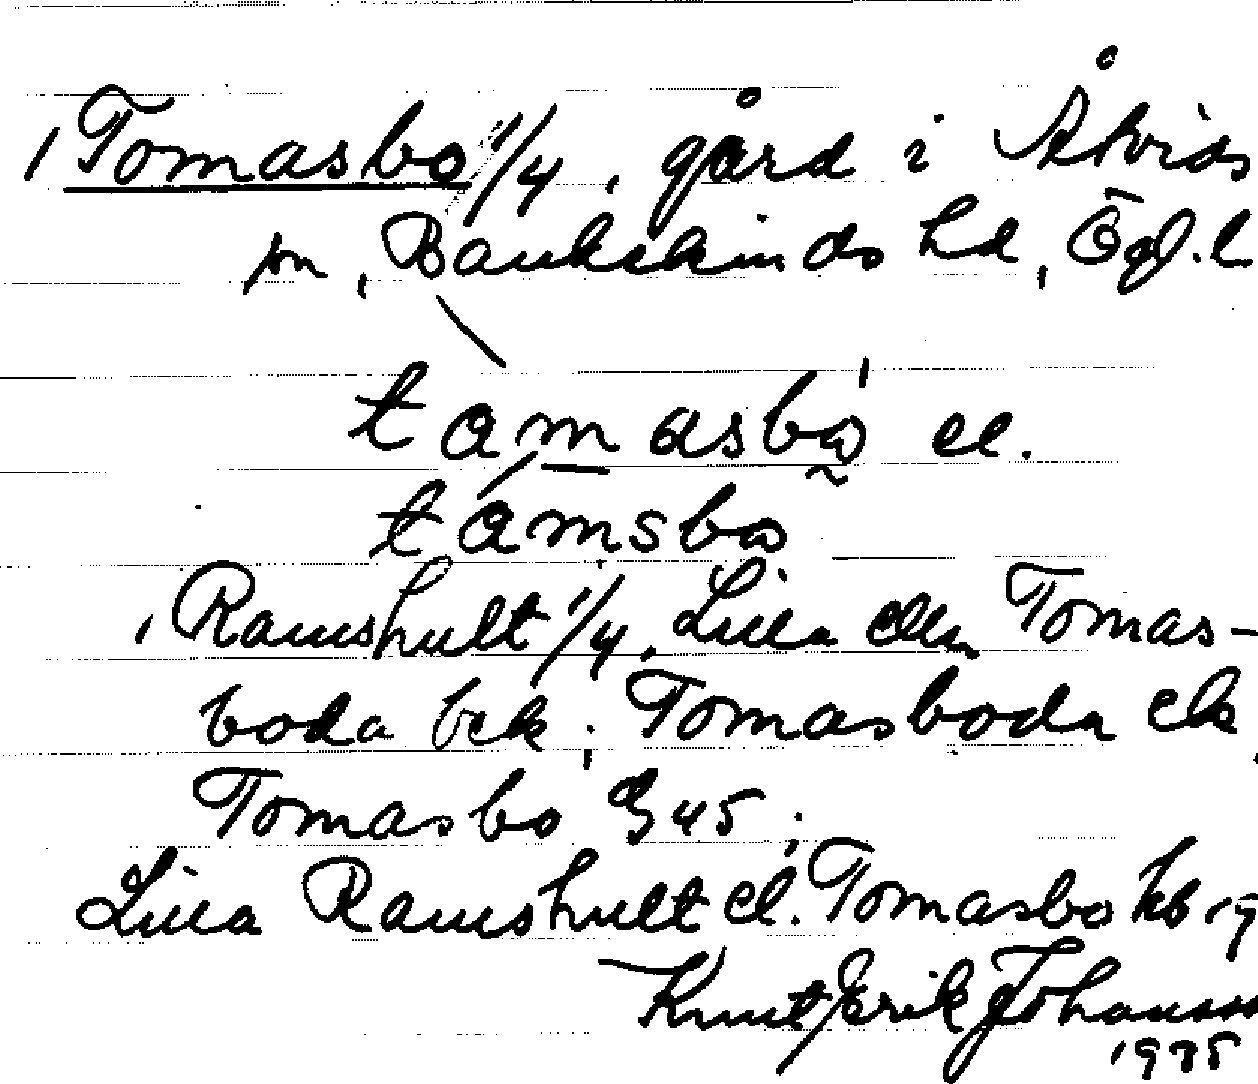 1 Tomasbo 1/4, gård i Åtvids
sn, Bankekinds hd, Ögl. l
tamasbo el.
tamsbo
1 Ramshult 1/4, Lilla eller Tomas-
boda bek; Tomasboda ek,
Tomasbo J 45;
Lilla Ramshult el. Tomasbo kb 19
Knut Erik Johansso
1935